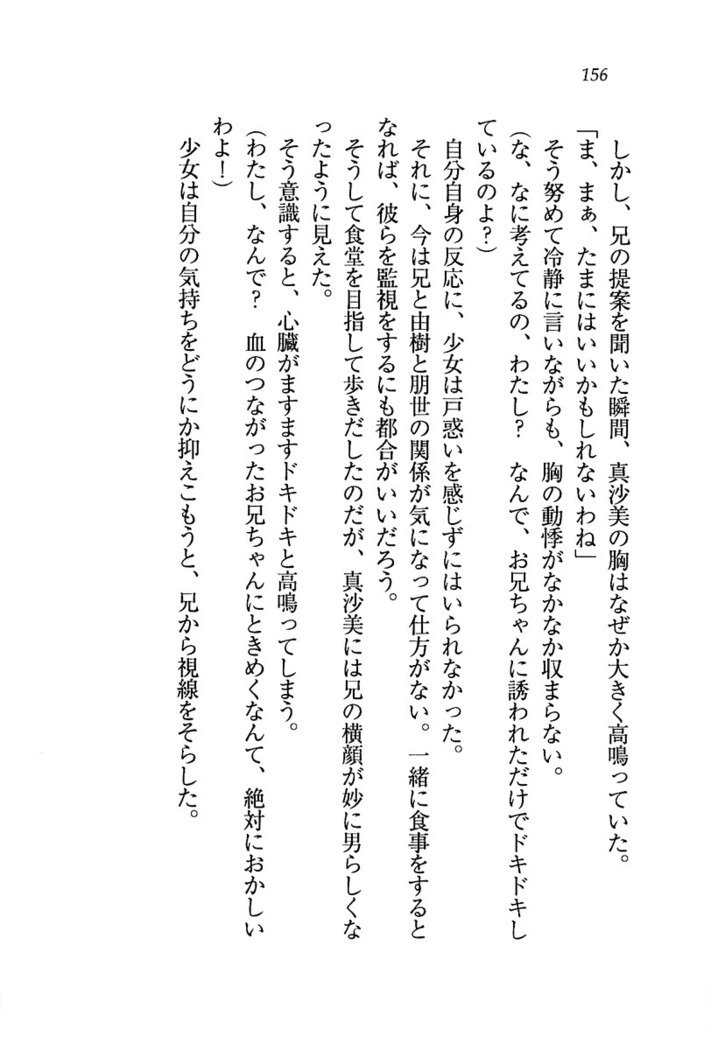 156
しかし、兄の提案を聞いた瞬間、真沙美の胸はなぜか大きく高鳴っていた。
「ま、まぁ、たまにはいいかもしれないわね」
そう努めて冷静に言いながらも、胸の動悸がなかなか収まらない。
(な、なに考えてるの、わたし？　なんで、お兄ちゃんに誘われただけでドキドキし
ているのよ？)
自分自身の反応に、少女は戸惑いを感じずにはいられなかった。
それに、今は兄と由樹と朋世の関係が気になって仕方がない。一緒に食事をすると
なれば、彼らを監視をするにも都合がいいだろう。
そうして食堂を目指して歩きだしたのだが、真沙美には兄の横顔が妙に男らしくな
ったように見えた。
そう意識すると、心臓がますますドキドキと高鳴ってしまう。
(わたし、なんで？　血のつながったお兄ちゃんにときめくなんて、絶対におかしい
わよ！)
少女は自分の気持ちをどうにか抑えこもうと、兄から視線をそらした。